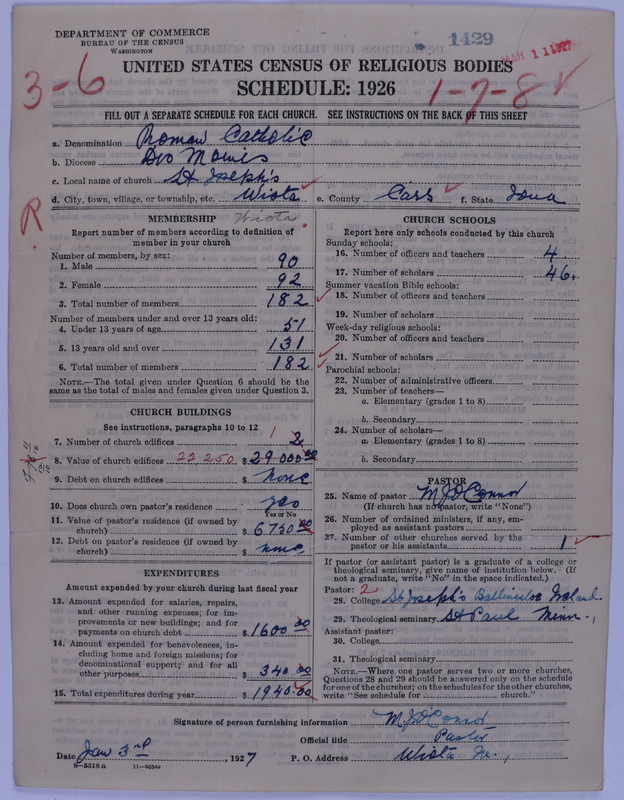 DEPARTMENT OF COMMERCE
BUREAU OF THE CENSUS
WASHINGTON
1429
MAR 11 1927
3-6
UNITED STATES CENSUS OF RELIGIOUS BODIES
SCHEDULE: 1926
1-7-8 ✓
FILL OUT A SEPARATE SCHEDULE FOR EACH CHURCH. SEE INSTRUCTIONS ON THE BACK OF THIS SHEET
a. Denomination Roman Catholic
b. Diocese Des Moines
c. Local name of church St Joseph's
d. City, town, village, or township, etc. Wiota e. County Cass f. State Iowa
R.
MEMBERSHIP Wiota
Report number of members according to definition of
member in your church
Number of members, by sex:
1. Male 90
2. Female 92
3. Total number of members 182
Number of members under and over 13 years old:
4. Under 13 years of age 51
5. 13 years old and over 131
6. Total number of members 182
NOTE.—The total given under Question 6 should be
same as the total of males and females given under Question 3.
CHURCH BUILDINGS
See instructions, paragraphs 10 to 12
7. Number of church edifices 1 2
8. Value of church edifices 22,250 $ 29 000 00
9. Debt on church edifices $ none
10. Does church own pastor's residence yes
Yes or No
11. Value of pastor's residence (if owned by
church) $ 6750 00
12. Debt on pastor's residence (if owned by
church) $ none
EXPENDITURES
Amount expended by your church during last fiscal year
13. Amount expended for salaries, repairs,
and other running expenses; for im-
provements or new buildings; and for
payments on church debt $ 1600 00
14. Amount expended for benevolences, in-
cluding home and foreign missions; for
denominational support; and for all
other purposes $ 340 00
15. Total expenditures during year $ 1940.00
CHURCH SCHOOLS
Report here only schools conducted by this church
Sunday schools:
16. Number of officers and teachers 4
17. Number of scholars 46
Summer vacation Bible schools:
18. Number of officers and teachers
19. Number of scholars
Week-day religious schools:
20. Number of officers and teachers
21. Number of scholars
Parochial schools:
22. Number of administrative officers
23. Number of teachers—
a. Elementary (grades 1 to 8)
b. Secondary
24. Number of scholars—
a. Elementary (grades 1 to 8)
b. Secondary
PASTOR
25. Name of pastor M J O'Connor
(If church has no pastor, write "None")
26. Number of ordained ministers, if any, em-
ployed as assistant pastors
27. Number of other churches served by the
pastor or his assistants 1
If pastor (or assistant pastor) is a graduate of a college or
theological seminary, give name of institution below. (If
not a graduate, write "No" in the space indicated.)
Pastor: 2
28. College St Joseph's Ireland
29. Theological seminary St Paul Minn.,
Assistant pastor:
30. College
31. Theological seminary
NOTE.—Where one pastor serves two or more churches,
Questions 28 and 29 should be answered only on the schedule
for one of the churches; on the schedules for the other churches,
write "See schedule for church."
Signature of person furnishing information M J O'Connor
Official title Pastor
Date Jan 3rd, 1927 P. O. Address Wiota Ia.,
8—5518 a 11—9654a